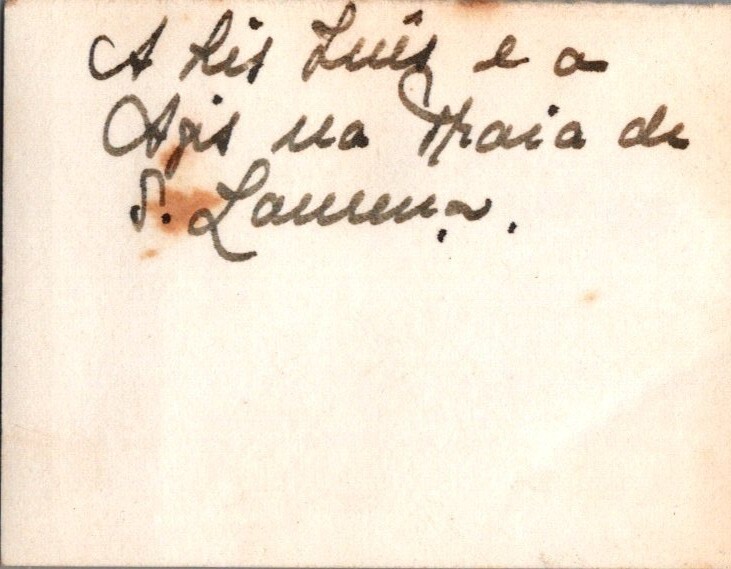 A Lis Luís e a
na Praia de
S. Lourenço.